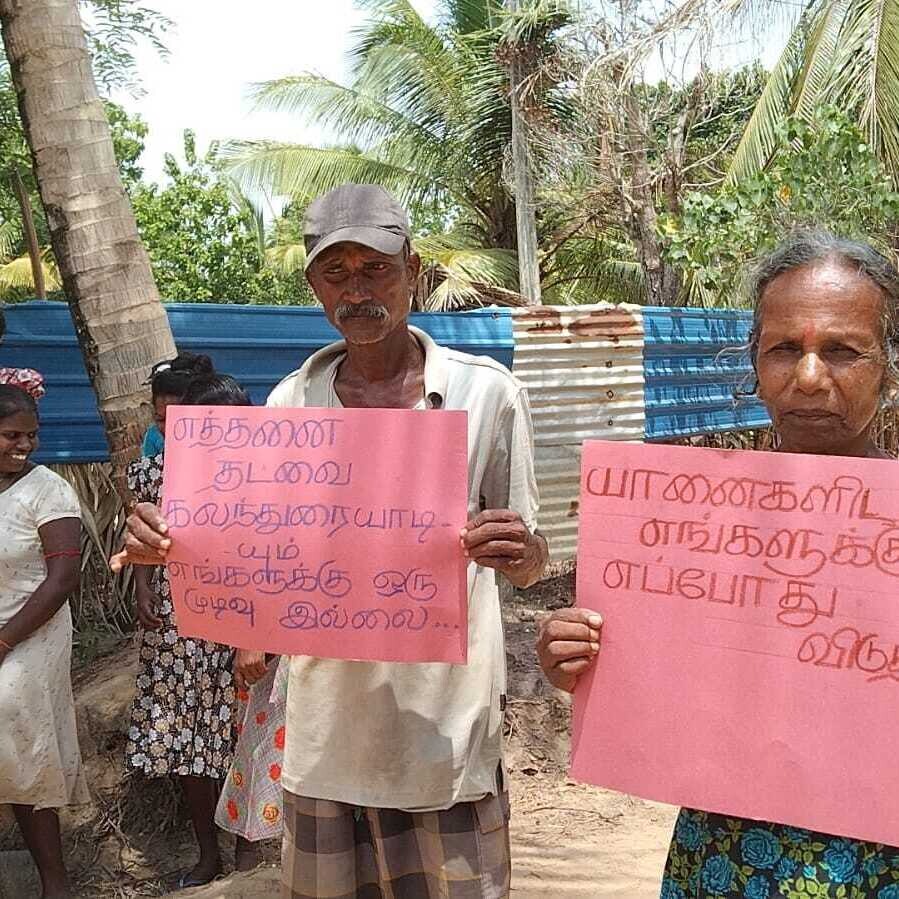 எத்தனை
தட்வை
கலந்துரையாடி-
யும்
எங்களுக்கு ஒரு
முடிவு இல்லை...
யானைகளிட
எங்களுக்கு
எப்போது